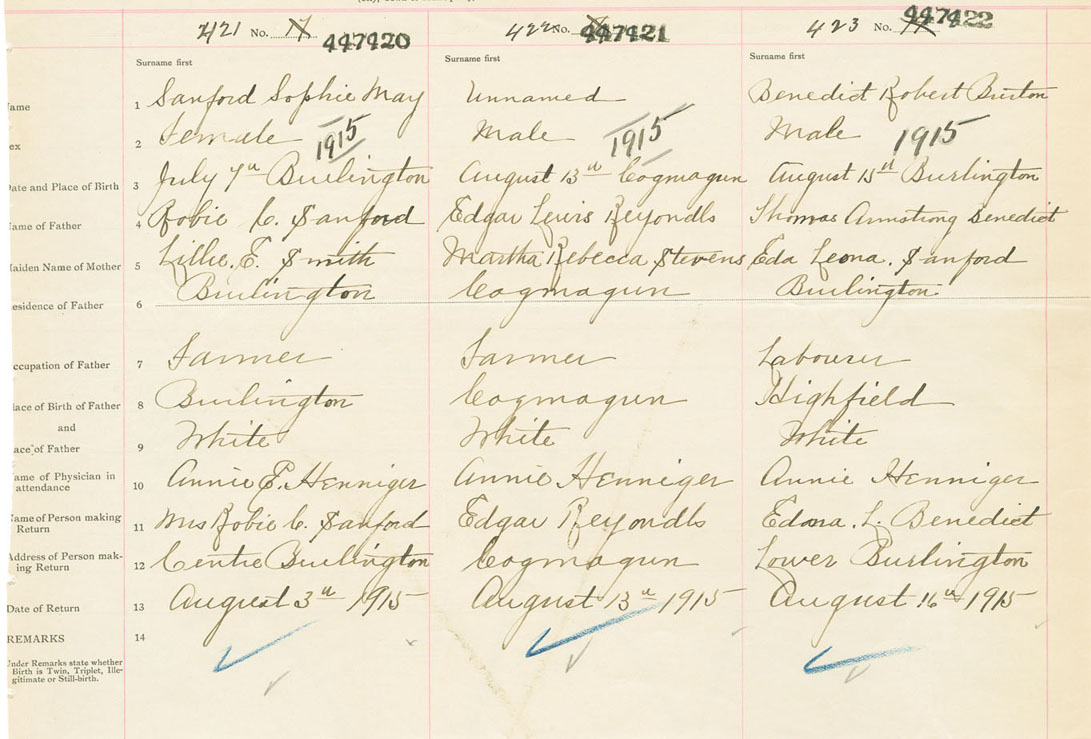 421 No. 17 447420
422 No. 447421
423 No. 447422
Surname first Surname first Surname first
ame 1 Sanford Sophie May Unnamed Benedict Robert Burton
ex 2 Female 1915 Male 1915 Male 1915
Date and Place of Birth 3 July 7th Burlington August 13th Cogmagun August 15th Burlington
ame of Father 4 Robie C. Sanford Edgar Lewis Reyondls Thomas Armstrong Benedict
Maiden Name of Mother 5 Lillie. E. Smith Martha Rebecca Stevens Eda Leona. Sanford
esidence of Father 6 Burlington Cogmagun Burlington
ccupation of Father 7 Farmer Farmer Labourer
lace of Birth of Father 8 Burlington Cogmagun Highfield
and
ace of Father 9 White White White
ame of Physician in
attendance 10 Annie E. Henniger Annie Henniger Annie Henniger
Name of Person making
Return 11 Mrs Robie C. Sanford Edgar Reyondls Edona. L. Benedict
Address of Person mak-
ing Return 12 Centre Burlington Cogmagun Lower Burlington
Date of Return 13 August 3rd 1915 August 13th 1915 August 16th 1915
REMARKS 14
Under Remarks state whether
Birth is Twin, Triplet, Ille-
gitimate or Still-birth.